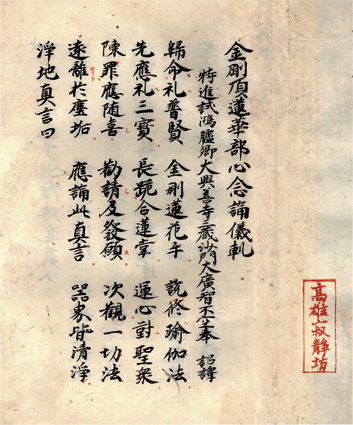 金剛頂蓮華部心念誦儀軌
特進試鴻臚卿大興善寺三藏沙門大廣智不空奉 詔譯
歸命礼普賢 金剛蓮花手 說修瑜伽法
先應礼三寶 長跪合蓮掌 運心對聖衆
陳罪應随喜 勸請及發願 次觀一切法
遠離於塵垢 應誦此真言 器界皆清淨
淨地真言曰
高雄寂静坊